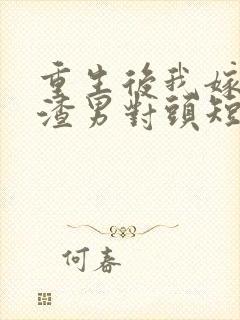 重生後我嫁
渣男對頭短
何春